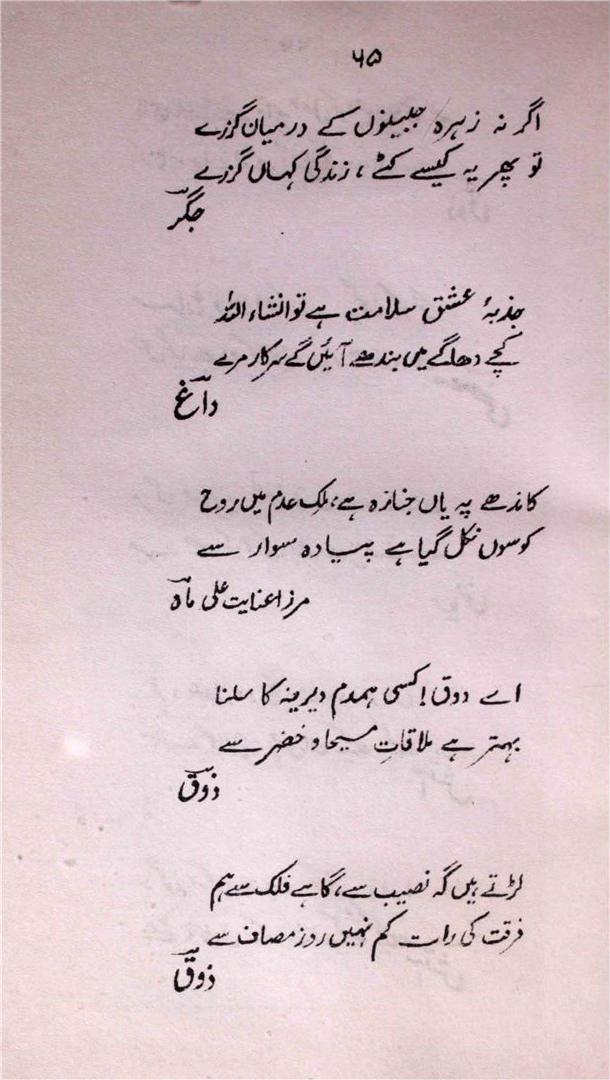 ۶۵
اگر نہ زہرہ جبینوں کے درمیان گزرے
تو پھر یہ کیسے کٹے ، زندگی کہاں گزرے
جگر
جذبۂ عشق سلامت ہے تو انشاء اللہ
کچے دھاگے میں بندھے آئیں گے سرکار مرے
داغ
کاندھے پہ یاں جنازہ ہے، ملکِ عدم میں روح
کوسوں نکل گیا ہے پیادہ سوار سے
مرزا عنایت علی ماہ
اے ذوق! کسی ہمدم دیرینہ کا ملنا
بہتر ہے ملاقاتِ مسیحا و خضر سے
ذوق
لڑتے ہیں گہ نصیب سے، گاہے فلک سے ہم
فرقت کی رات کم نہیں روز مصاف سے
ذوق